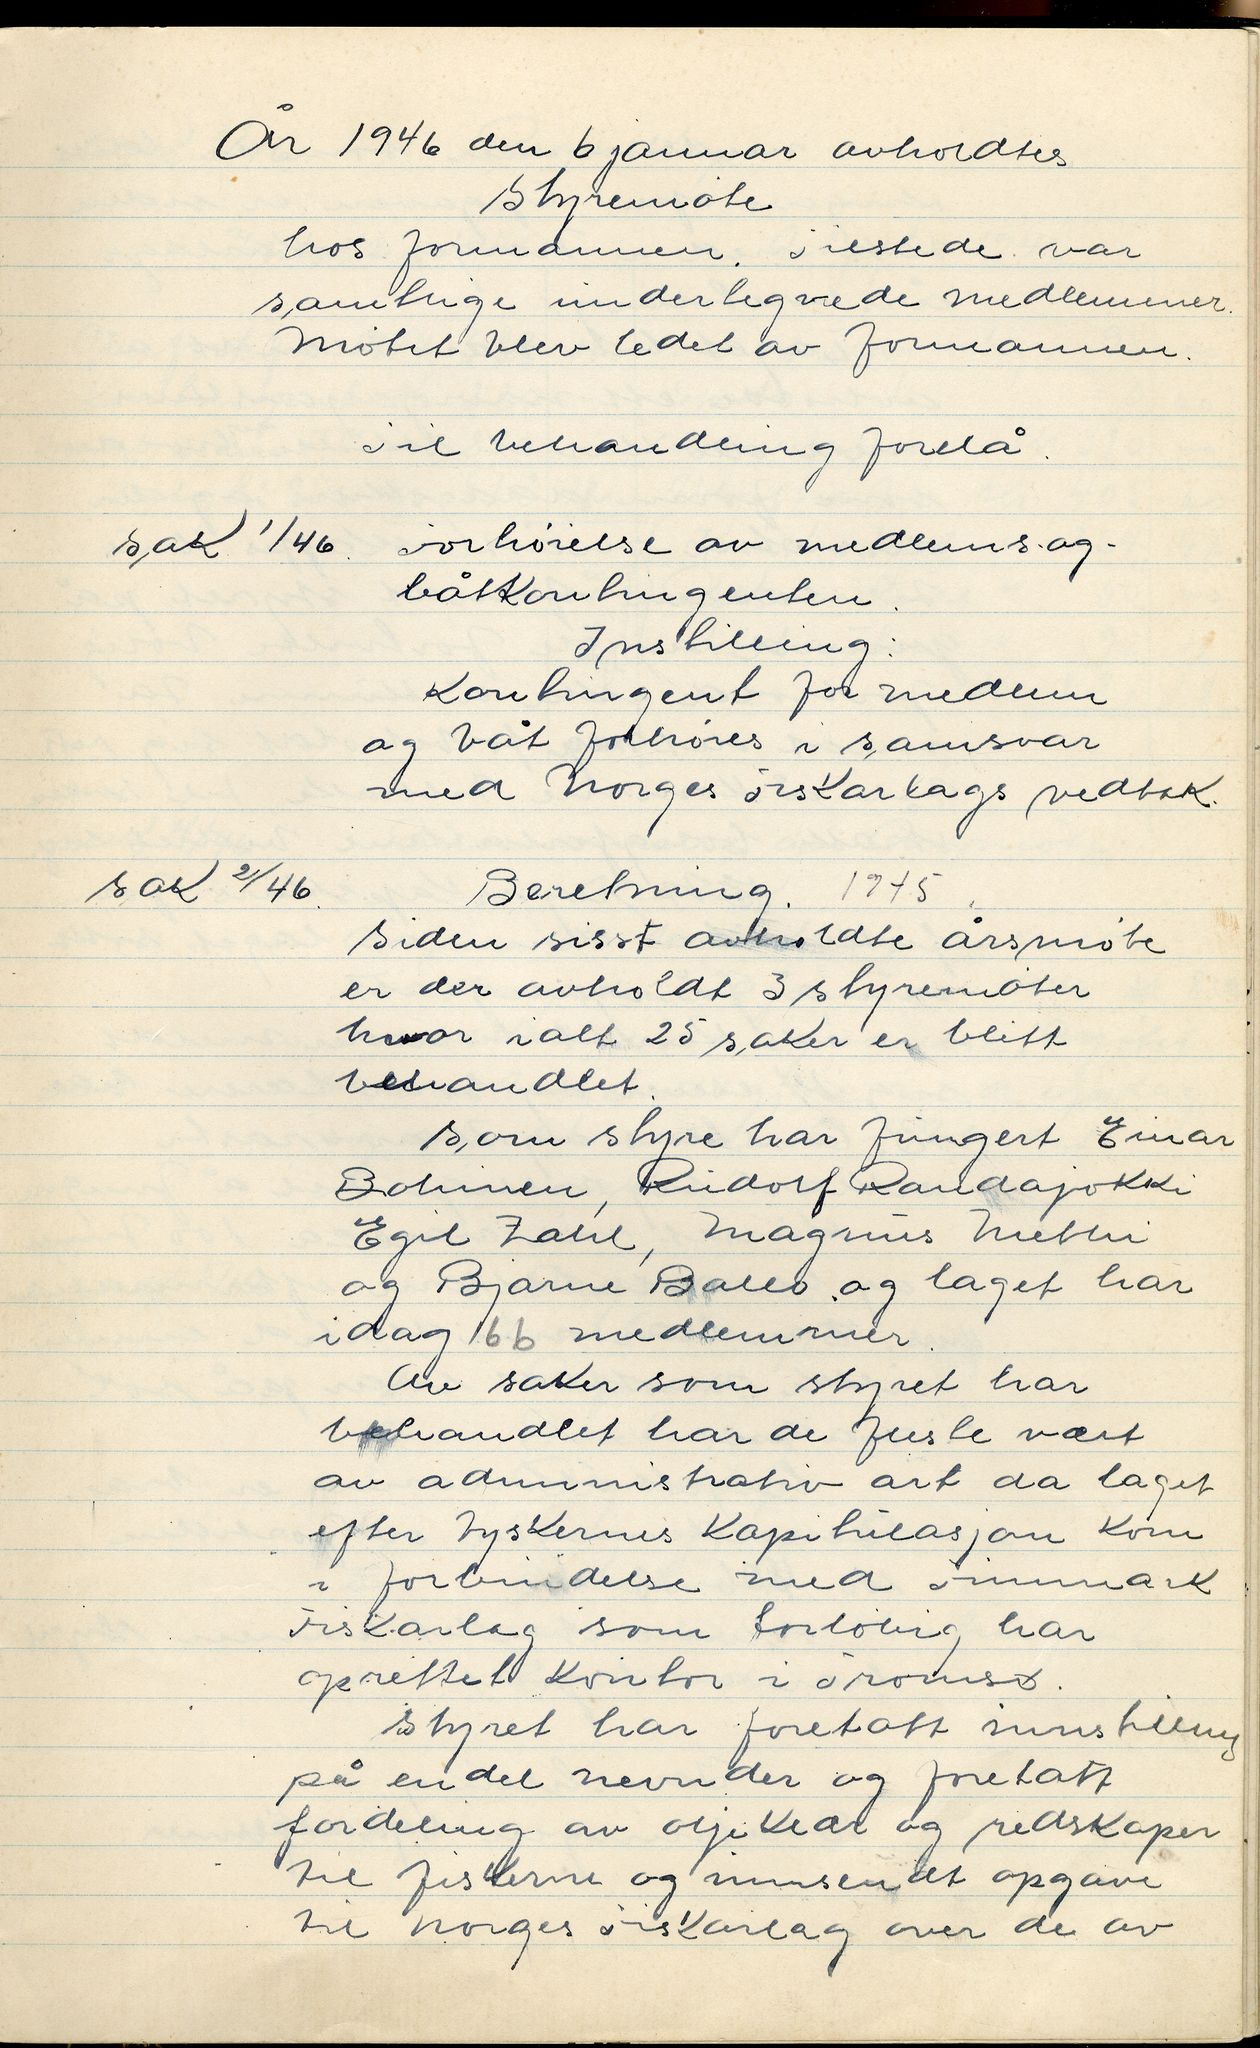 År 1946 den 6 januar avholdtes
styremöte
hos formannen. Tilstede var
samtlige undertegnede medlemmer.
Mötet blev ledet av formannen.
Til behandling forelå.
Sak 1/46. Forhöielse av medlems- og
båtkontingenten.
Instilling:
Kontingent for medlem
og båt forhöies i samsvar
med Norges Fiskarlags vedtak.
Sak 2/46. Beretning. 1945.
Siden sisst avholdte årsmöte
er der avholdt 3 styremöter
hvor ialt 25 saker er blitt
behandlet.
Som styre har fungert Einar
Bohinen, Rudolf Randajokki
Egil Zahl, Magnus Methi
og Bjarne Ballo og laget har
idag 66 medlemmer.
Av saker som styret har
behandlet har de fleste vært
av administrativ art da laget
efter tyskernes Kapitulasjon kom
i forbindelse med Finnmark
Fiskarlag som forlöbig har
oprettet kontor i Tromsø.
Styret har foretatt innstilling
på endel nevnder og foretatt
fordeling av oljeklær og redskaper
til fiskerne og innsendt opgave
til Norges Fiskarlag over de av